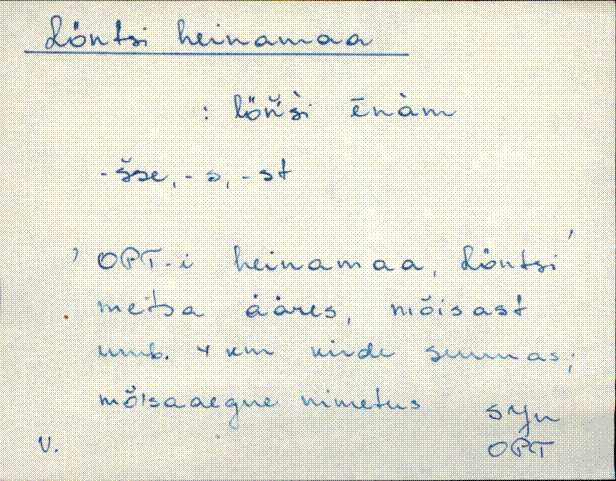 Löntsi heinamaa
: lön̆̀si ēnàm
-šse, -s, -st
' OPT-i heinamaa, Löntsi'
metsa ääres, mõisast
umb. 4 km kirde suunas;
mõisaaegne nimetus
syn
V. OPT